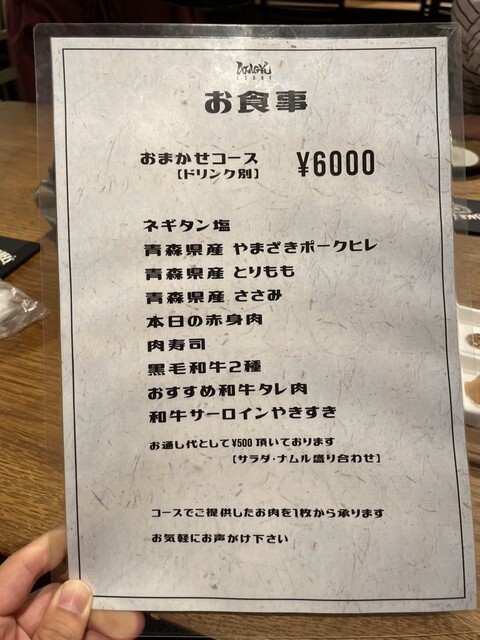 お食事
おまかせコース ¥6000
[ドリンク別]
ネギタン塩
青森県産 やまざきポークヒレ
青森県産 とりもも
青森県産 ささみ
本日の赤身肉
肉寿司
黒毛和牛2種
おすすめ和牛タレ肉
和牛サーロインやきすき
お通し代として¥500 頂いております
[サラダ・ナムル盛り合わせ]
コースでご提供したお肉を1枚から承ります
お気軽にお声がけ下さい